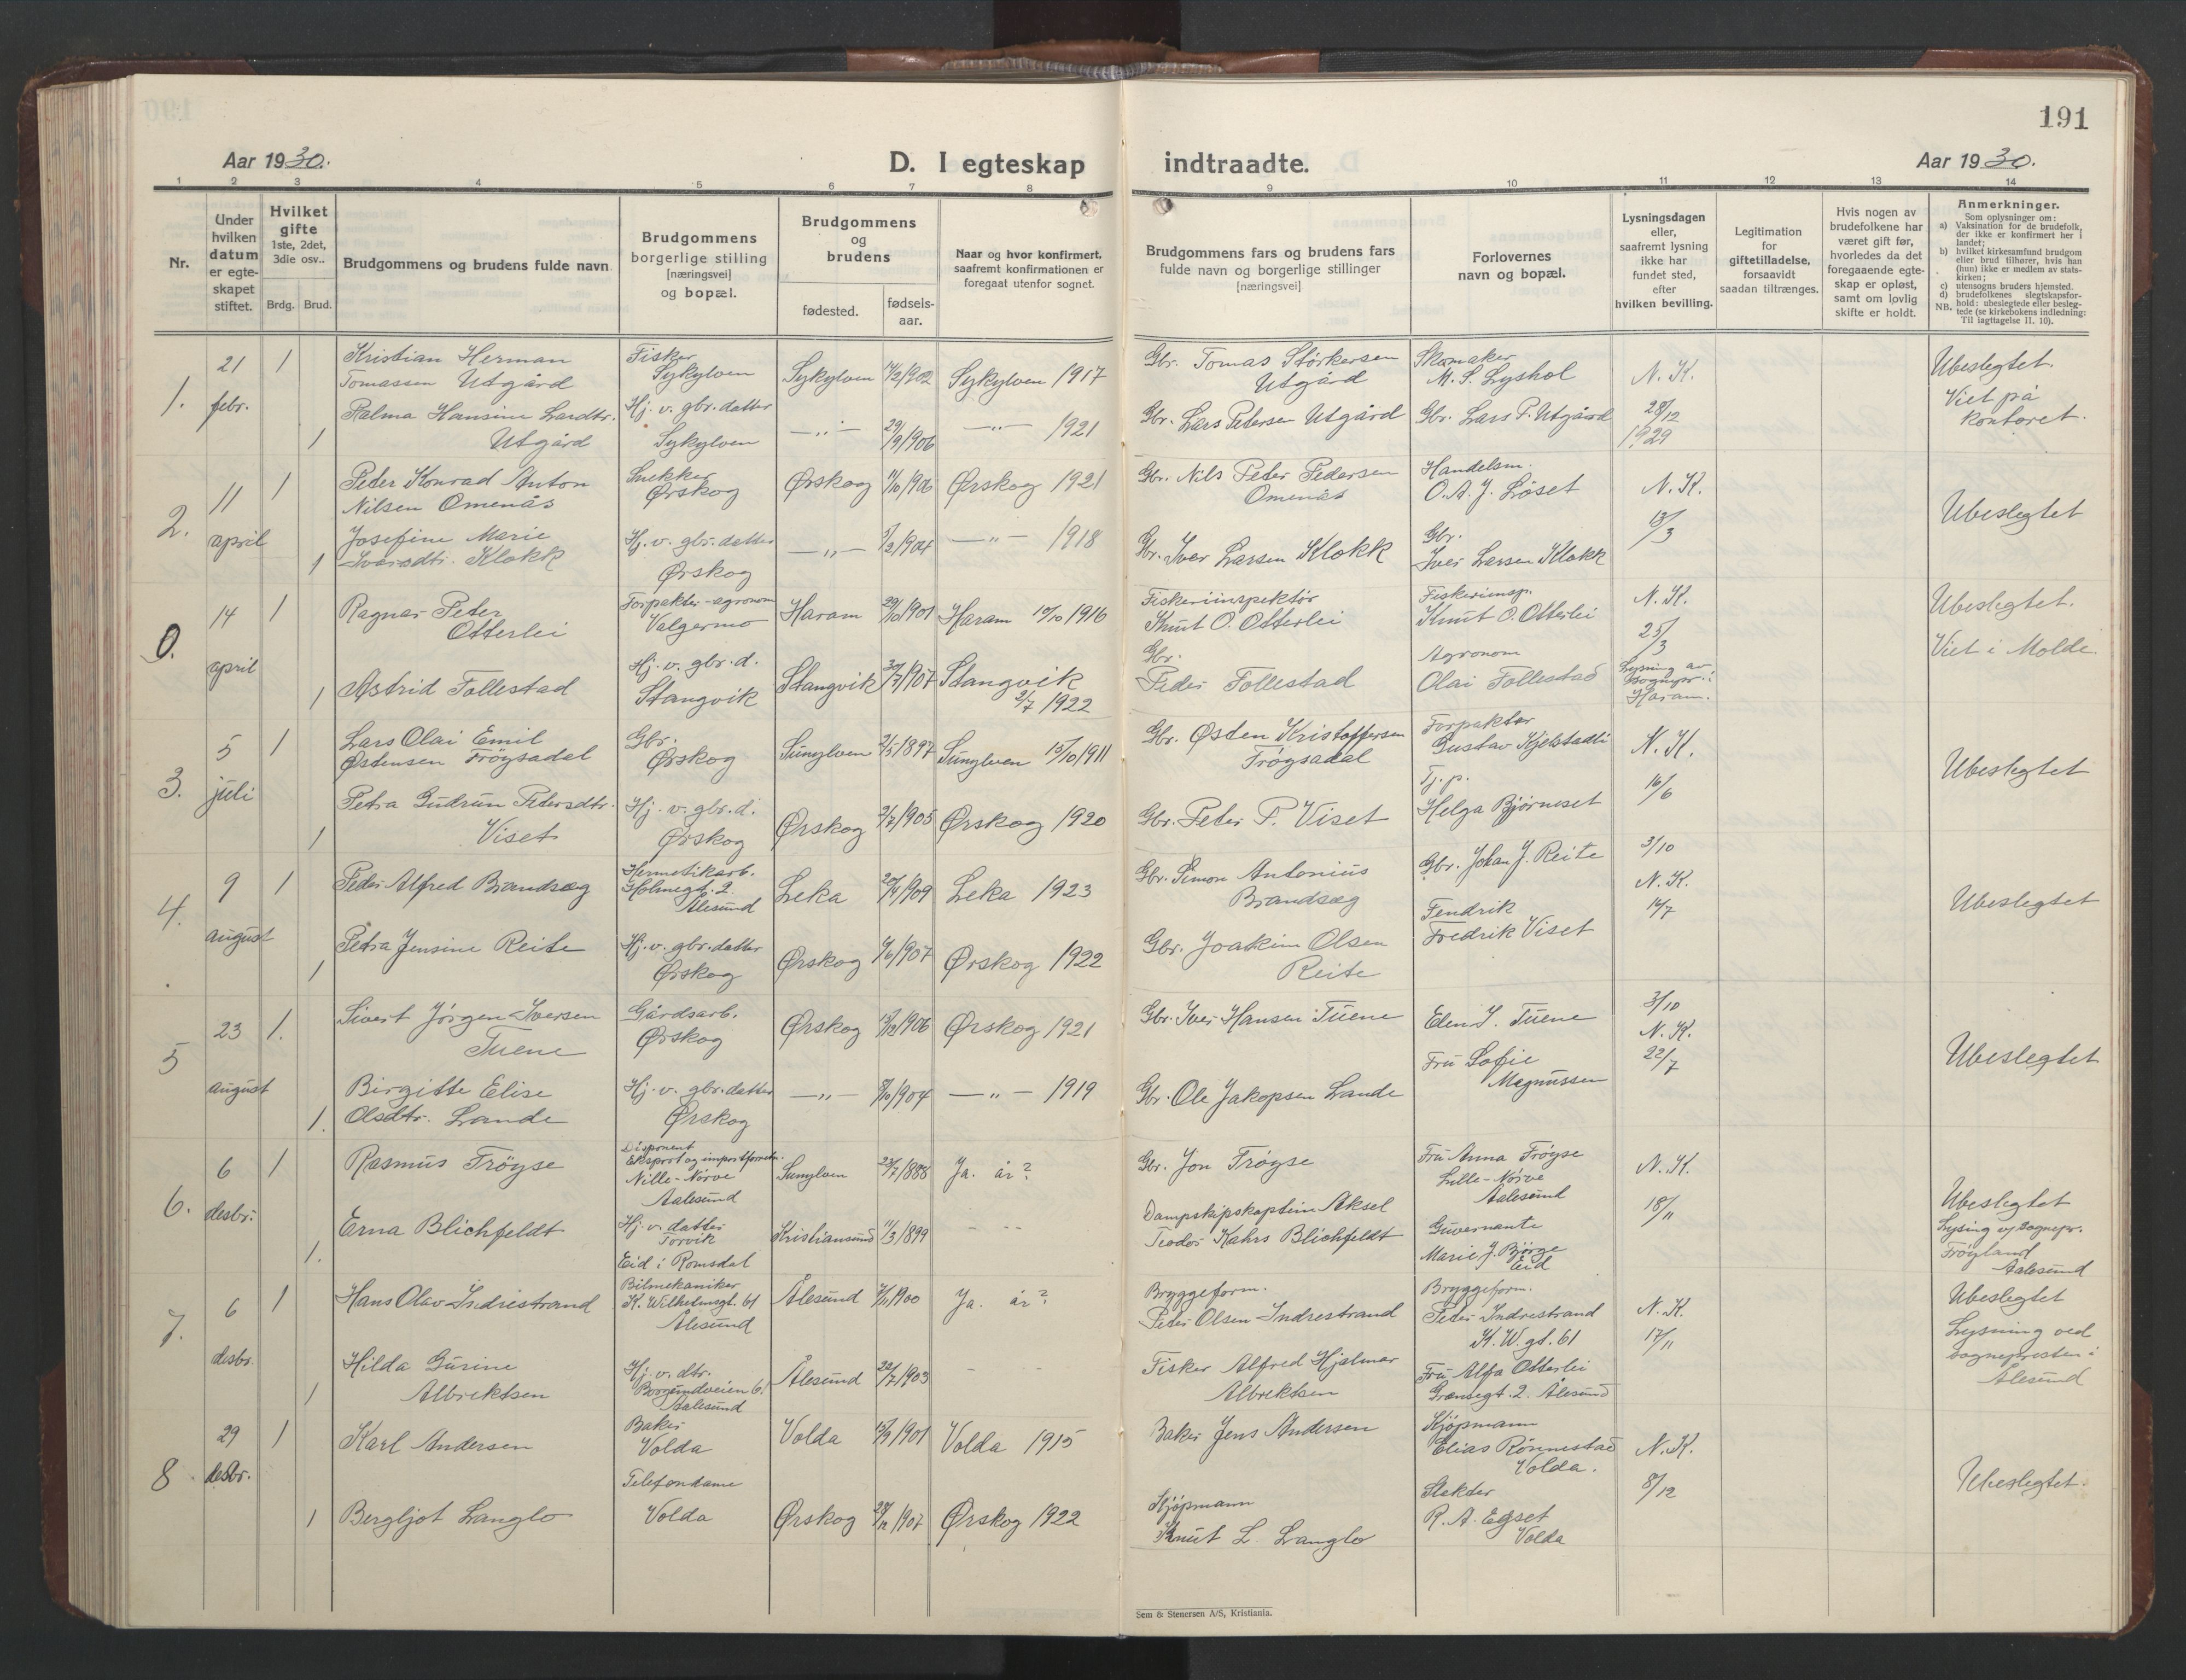 191
Aar 1930.
D. I egteskap indtraadte.
Aar 1930.
1 2 3 4 5 6 7 8 9 10 11 12 13 14
Nr.
Under hvilken datum er egte-skapet stiftet.
Hvilket gifte 1ste, 2det, 3die osv..
Brdg. Brud.
Brudgommens og brudens fulde navn
Brudgommens borgerlige stilling [næringsvei] og bopæl.
Brudgommens og brudens
fødested.
fødsels-aar.
Naar og hvor konfirmert, saafremt konfirmationen er foregaat utenfor sognet.
Brudgommens fars og brudens fars fulde navn og borgerlige stillinger [næringsvei]
Forlovernes navn og bopæl.
Lysningsdagen eller, saafremt lysning ikke har fundet sted, efter hvilken bevilling.
Legitimation for giftetilladelse, forsaavidt saadan tiltrænges.
Hvis nogen av brudefolkene har været gift før, hvorledes da det foregaaende egte-skap er opløst, samt om lovlig skifte er holdt.
Anmerkninger.
Som oplysninger om:
a) Vaksination for de brudefolk, der ikke er konfirmert her i landet;
b) hvilket kirkesamfund brudgom eller brud tilhører, hvis han (hun) ikke er medlem av stats-kirken;
c) utensogns bruders hjemsted.
d) brudefolkenes slegtskapsfor-hold: ubeslegtede eller beslegtede (se kirkebokens indledning: Til iagttagelse II. 10).
NB.
1. 21 febr. 1
Kristian Herman
Tomassen Utgård
Fisker
Sykylven
Sykylven 14/2 1902 Sykylven 1917
Gbr. Tomas Størkersen
Utgård
Skomaker
M. S. Lyshol
N. K.
28/12
1929
Ubeslegtet.
Viet på
kontoret.
1
Palma Hansine Larsdtr.
Utgård
Hj. v. gbr. datter
Sykylven
—„— 29/9 1906 —„— 1921
Gbr. Lars Petersen Utgård
Gbr. Lars P. Utgård
2. 11 april 1
Peder Konrad Anton
Nilsen Omenås
Snekker
Ørskog
Ørskog 11/10 1906 Ørskog 1921
Gbr. Nils Peter Pedersen
Omenås
Handelsm.
O. A. J. Løset
N. K.
13/3
Ubeslegtet
1
Josefine Marie
Iversdtr. Klokk
Hj. v. gbr. datter
Ørskog
—„— /2 1904 —„— 1918
Gbr. Iver Larsen Klokk
Gbr.
Iver Larsen Klokk
0. 14 april 1
Ragnar Peter
Otterlei
Forpakter-agronom
Valgermo
Haram 29/10 1901 Haram 10/10 1916
Fiskeriinspektør
Knut O. Otterlei
Fiskeriinsp.
Knut O. Otterlei
N. K.
25/3
Lysning av
sognepr. i
Haram.
Ubeslegtet.
Viet i Molde.
1
Astrid Tollestad
Hj. v. gbr. d.
Stangvik
Stangvik 30/7 1907 Stangvik
2/7 1922
Gbr.
Peder Tollestad
Agronom
Olai Tollestad
3. 5 juli 1
Lars Olai Emil
Østensen Frøysadal
Gbr.
Ørskog
Sunylven 2/5 1897 Sunylven 15/10 1911
Gbr. Østen Kristoffersen
Frøysadal
Forpakter
Gustav Kjelstadli
N. K.
16/6
Ubeslegtet
1
Petra Gudrun Petersdtr.
Viset
Hj. v. gbr. d.
Ørskog
Ørskog 2/7 1905 Ørskog 1920
Gbr. Peter P. Viset
Tj. p.
Helga Bjørneset
4. 9 august 1
Peder Alfred Brandsæg
Hermetikarb.
Holmegt. 2
Ålesund
Leka 20/4 1909 Leka 1923
Gbr. Simon Antonius
Brandsæg
Gbr. Johan J. Reite
3/10
N. K.
14/7
Ubeslegtet
1
Petra Jensine Reite
Hj. v. gbr. datter
Ørskog
Ørskog /6 1907 Ørskog 1922
Gbr. Joakim Olsen
Reite
Fendrik
Fredrik Viset
5 23 august 1.
Sivert Jørgen Iversen
Tuene
Gårdsarb.
Ørskog
Ørskog 13/12 1906 Ørskog 1921
Gbr. Iver Hansen Tuene
Elen I. Tuene
3/10
N. K.
22/7
Ubeslegtet
1.
Birgitte Elise
Olsdtr. Lande
Hj. v. gbr. datter
Ørskog
—„— 8/10 1904 —„— 1919
Gbr. Ole Jakopsen Lande
Fru Sofie
Magnussen
6. 6 desbr. 1
Rasmus Frøyse
Disponent
Eksport og importforretn.
Nille-Nørve
Aalesund
Sunylven 23/7 1888 Ja. år?
Gbr. Jon Frøyse
Fru Anna Frøyse
Lille-Nørve
Aalesund
N. K.
18/11
Ubeslegtet
Lysing v/ sognepr.
Frøyland
Aalesund
1.
Erna Blichfeldt
Hj. v. datter
Torvik
Eid i Romsdal
Kristiansund 11/3 1899 - - -
Dampskipskaptein Aksel
Teodor Kahrs Blichfeldt
Guvernante
Marie J. Børge
Eid
7. 6 desbr. 1
Hans Olav Indrestrand
Bilmekaniker
K. Wilhelmsgt. 61
Ålesund
Ålesund 7/11 1900 Ja. år?
Bryggeform.
Peter Olsen Indrestrand
Bryggeform.
Peter Indrestrand
K. W. gt. 61
N. K.
17/11
Ubeslegtet
Lysning ved
sogneprosten i
Ålesund
1
Hilda Gurine
Albrektsen
Hj. v. dtr.
Borgundveien 61
Aalesund
Ålesund 22/7 1903 - -
Fisker Alfred Hjalmar
Albrektsen
Fru Alfa Otterlei
Grensegt. 2. Ålesund
8 29 desbr. 1
Karl Andersen
Baker
Volda
Volda 15/9 1901 Volda 1915
Baker Jens Andersen
Kjøpmann
Elias Rønnestad
Volda.
N. K.
8/12
Ubeslegtet.
1
Bergljot Langlo
Telefondame
Volda
Ørskog 28/11 1907 Ørskog 1922
Kjøpmann
Knut L. Langlo
Slakter
R. A. Egset
Volda
Sem & Stenersen A/S, Kristiania.